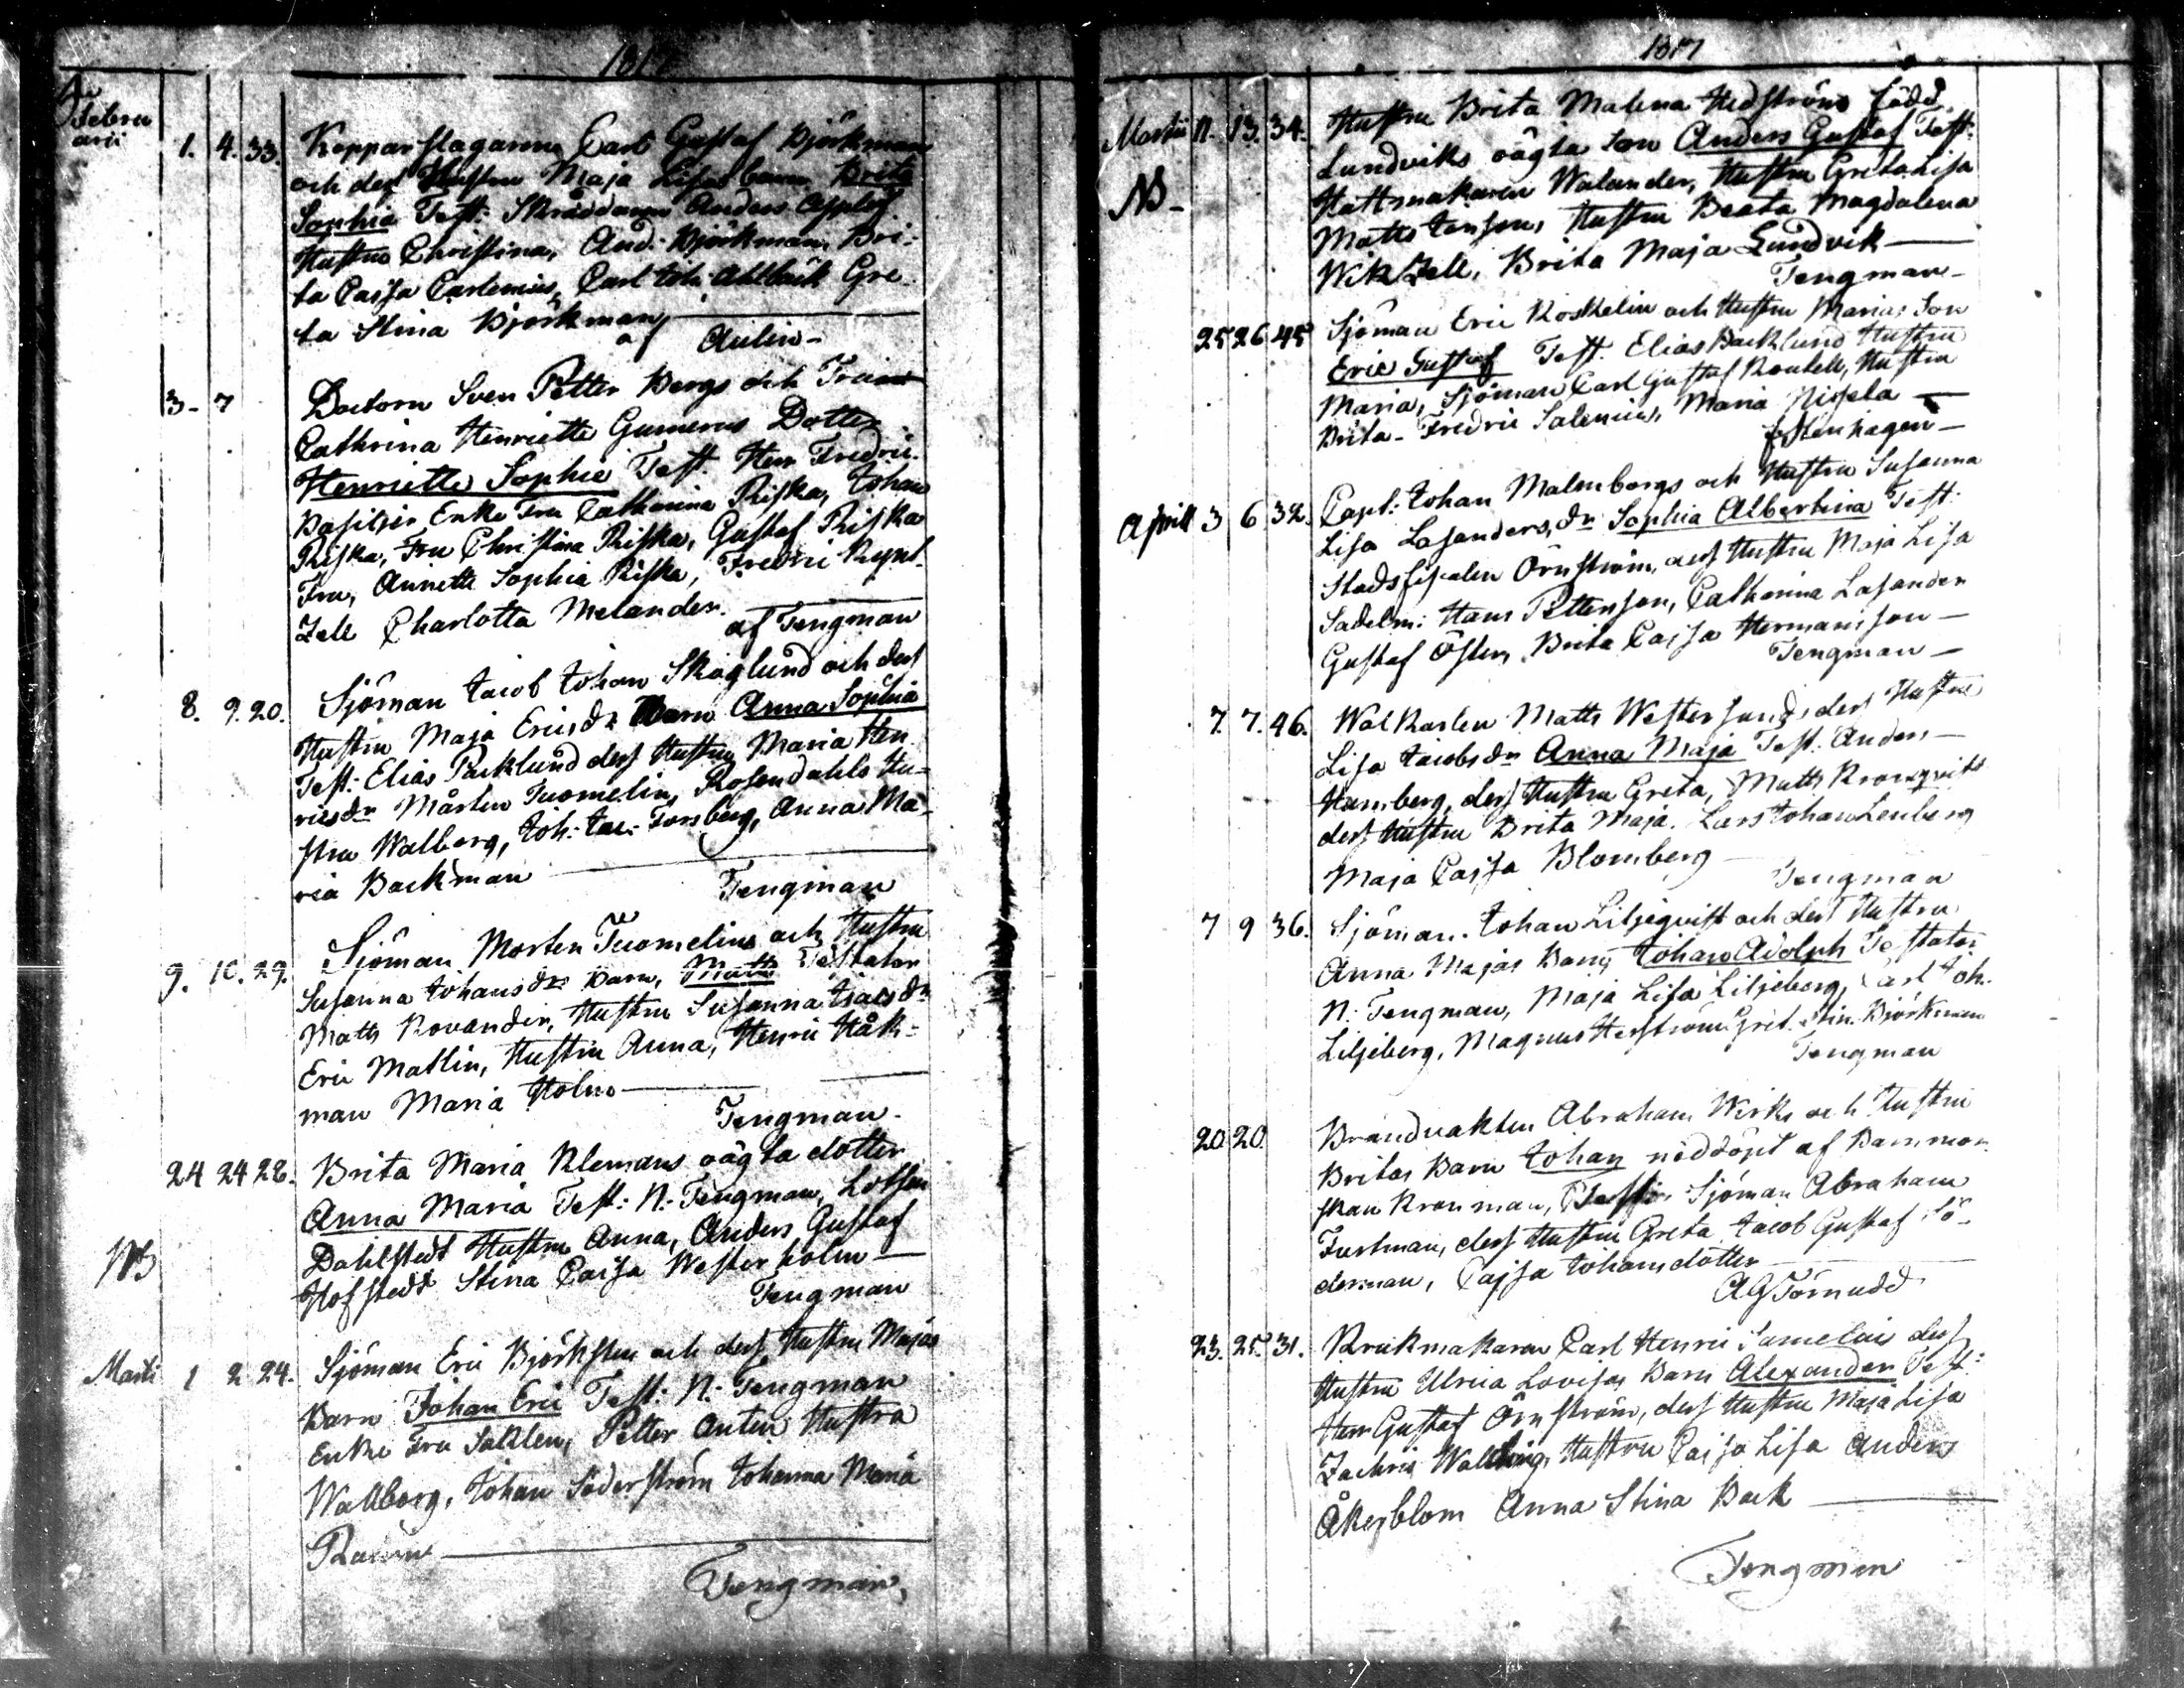 1817
Februarii
1. 4. 33. Kopparslagaren Carl Gustaf Björkman
och dess Hustru Maja Lisas barn Brita
Sophia Test: Skräddaren Anders Applof
Hustru Christina, And: Björkman Bri-
ta Caisa Carlenius, Carl Joh: Ahlbäck Gre
ta Stina Björkman
af Aulin
3 - 7 Doctorn Sven Petter Bergs och Fruns
Cathrina Henriette Gumerus Dotter
Henriette Sophie Test. Herr Fredric
Basilier Enke Fru Catharina Riska, Johan
Riska, Fru Christina Riska, Gustaf Riska
Fru, Annette Sophia Riska, Fredric
Zell Charlotta Melander.
af Tengman
8. 9. 20. Sjöman Jacob Johan Skoglund och dess
Hustru Maja Ericsdr Barn Anna Sophia
Test: Elias Backlund dess Hustru Maria Hen
ricsdr Mårten Tuomelin, Rosendahls Hu-
stru Walborg, Joh: Jac: Forsberg, Anna Ma-
ria Backman
Tengman
9. 10. 29. Sjöman Morten Tuomelins och Hustru
Susanna Johansdrs Barn, Matts Testator
Matts Rovander, Hustru Susanna Isacsdr
Eric Matlin, Hustru Anna, Henric Håk-
man Maria Holm
Tengman
24 24 28. Brita Maria Klemans oägta dotter
Anna Maria Test: N: Tengman, Lotsen
NB Dahlstedt Hustru Anna, Anders Gustaf
Hofstedt Stina Caisa Westerholm
Tengman
Martii 1 2 24. Sjöman Eric Björksten och dess Hustru Majas
Barn Johan Eric Test: N: Tengman
Enke Fru Sahlen, Petter Anten Hustru
Wallborg, Johan Söderström Johanna Maria
Tengman
1817
Martii 11. 13. 34. Hustru Brita Malena Hedströms född
Lundviks oägta Son Anders Gustaf Test:
NB Hattmakaren Walander, Hustru Greta Lisa
Matts Jansons Hustru Beata Magdalena
Wikzell, Brita Maja Lundvik
Tengman
25 26 45 Sjöman Eric Koskelin och Hustru Marias Son
Eric Gustaf Test. Elias Backlund Hustru
Maria, Sjöman Carl Gustaf Hustru
Brita - Fredric Salenius, Maria
Stenhagen
April 3 6 32. Capt: Johan Malmborgs och Hustru Susanna
Lisa Lasanders, dr Sophia Albertina Test:
Stadsfiskalen Örnström, dess Hustru Maja Lisa
Sadelm: Hans Petterson, Catharina Lasander
Gustaf Öster, Brita Caisa Hermansson
Tengman
7. 7. 46. Walkarlen Matts Westerlunds dess Hustru
Lisa Jacobsdr Anna Maja Test: Anders
Hamberg, dess Hustru Greta, Matts Kronqvist
dess Hustru Brita Maja. Lars Johan Lenberg
Maja Caisa Blomberg
Tengman
7 9 36. Sjöman Johan Liljeqvist och dess Hustru
Anna Majas Barn Johan Adolph Testator
N: Tengman, Maja Lisa Liljeberg, Carl Joh.
Liljeberg, Magnus Herström Gret. Stin. Björkman
Tengman
20 20 Brandvakten Abraham Wirks och Hustru
Britas Barn Johan nöddöpt af Barnmor
skan Kronman, Sjöman Abraham
Furtman, dess Hustru Greta Jacob Gustaf Sö-
derman, Cajsa Johansdotter
AG Törnudd
23. 25. 31. Krukmakaren Carl Henric Samelius dess
Hustru Ulrica Lovisas Barn Alexander Test:
Herr Gustaf Örnström, dess Hustru Maja Lisa
Zachris Hustru Caisa Lisa Anders
Åkerblom Anna Stina Back
Tengman